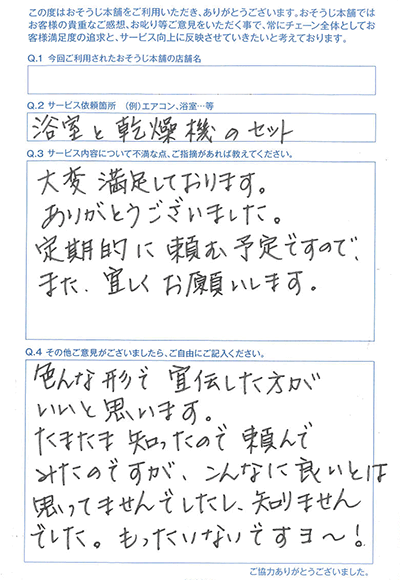 この度はおそうじ本舗をご利用いただき、ありがとうございます。おそうじ本舗では
お客様の貴重なご感想、お叱り等ご意見をいただく事で、常にチェーン全体としてお
客様満足度の追求と、サービス向上に反映させていきたいと考えております。
Q.1 今回ご利用されたおそうじ本舗の店舗名
Q.2 サービス依頼箇所 (例)エアコン、浴室…等
浴室と乾燥機のセット
Q.3 サービス内容について不満な点、ご指摘があれば教えてください。
大変満足しております。
ありがとうございました。
定期的に頼む予定ですので、
また、宜しくお願いします。
Q.4 その他ご意見がございましたら、ご自由にご記入ください。
色んな形で宣伝した方が
いいと思います。
たまたま知ったので頼んで
みたのですが、こんなに良いとは
思ってませんでしたし、知りません
でした。もったいないですヨ〜!
ご協力ありがとうございました。